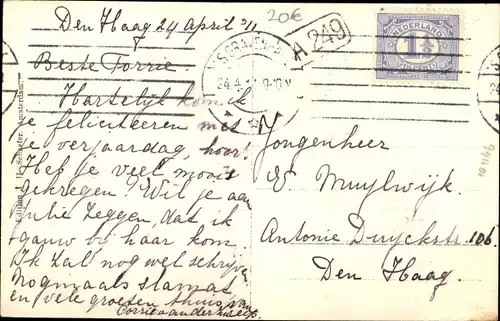 Den Haag 24 April '11
20€
's GRAVENHAGE
24.4
9-10 V
H 249
NEDERLAND
1½
CENT
Beste Torrie
Hartelijk kom ik
je feliciteeren met
je verjaardag, hoor!
Heb je veel moois
gekregen? Wil je aan
Julie zeggen, dat ik
gauw bij haar kom.
Ik zal nog wel schrijven
Nogmaals
en vele groeten thuis, van
Corrie van der
Schaefer, Amsterdam.
Jongenheer
W Muylwijk
Antonie Duyckstr. 106.
Den Haag.